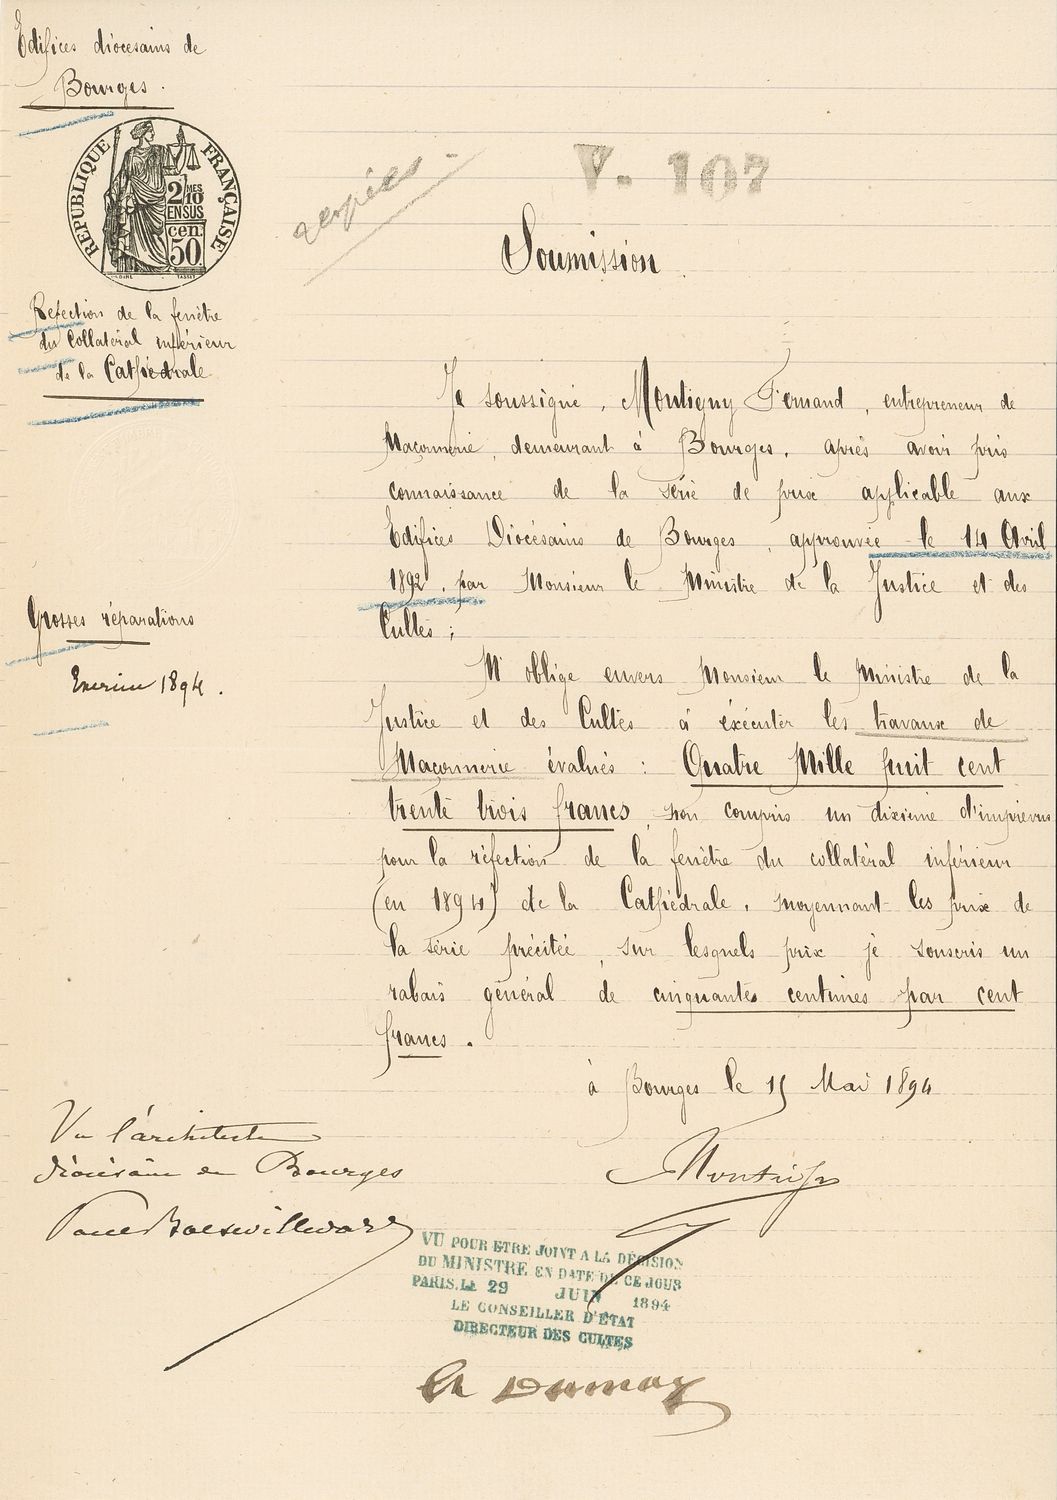 Edifices diocésains de
Bourges.
RÉPUBLIQUE FRANÇAISE
2 MES
10
EN SUS
cen.
50
V. 107
Soumission
Réfection de la fenêtre
du Collatéral inférieur
de la Cathédrale
Je soussigné, Montigny Fernand, entrepreneur de
Maçonnerie, demeurant à Bourges, après avoir pris
connaissance de la série de prix applicable aux
Edifices Diocésains de Bourges, approuvée le 14 Avril
1892, par Monsieur le Ministre de la Justice et des
Cultes;
Grosses réparations
Exercice 1894.
M'oblige envers Monsieur le Ministre de la
Justice et des Cultes à éxécuter les travaux de
Maçonnerie évalués : Quatre Mille huit cent
trente trois francs, non compris un dixième d'imprévus
pour la réfection de la fenêtre du collatéral inférieur
(en 1894) de la Cathédrale, moyennant les prix de
la série précitée, sur lesquels prix je souscris un
rabais général de cinquantes centimes par cent
francs.
à Bourges le 15 Mai 1894
Vu l'architecte
diocésain de Bourges
Paul Boeswillwald
Montigny
VU POUR ETRE JOINT A LA DÉCISION
DU MINISTRE EN DATE DE CE JOUR
PARIS, LE 29 JUIN 1894
LE CONSEILLER D'ÉTAT
DIRECTEUR DES CULTES
Dumay